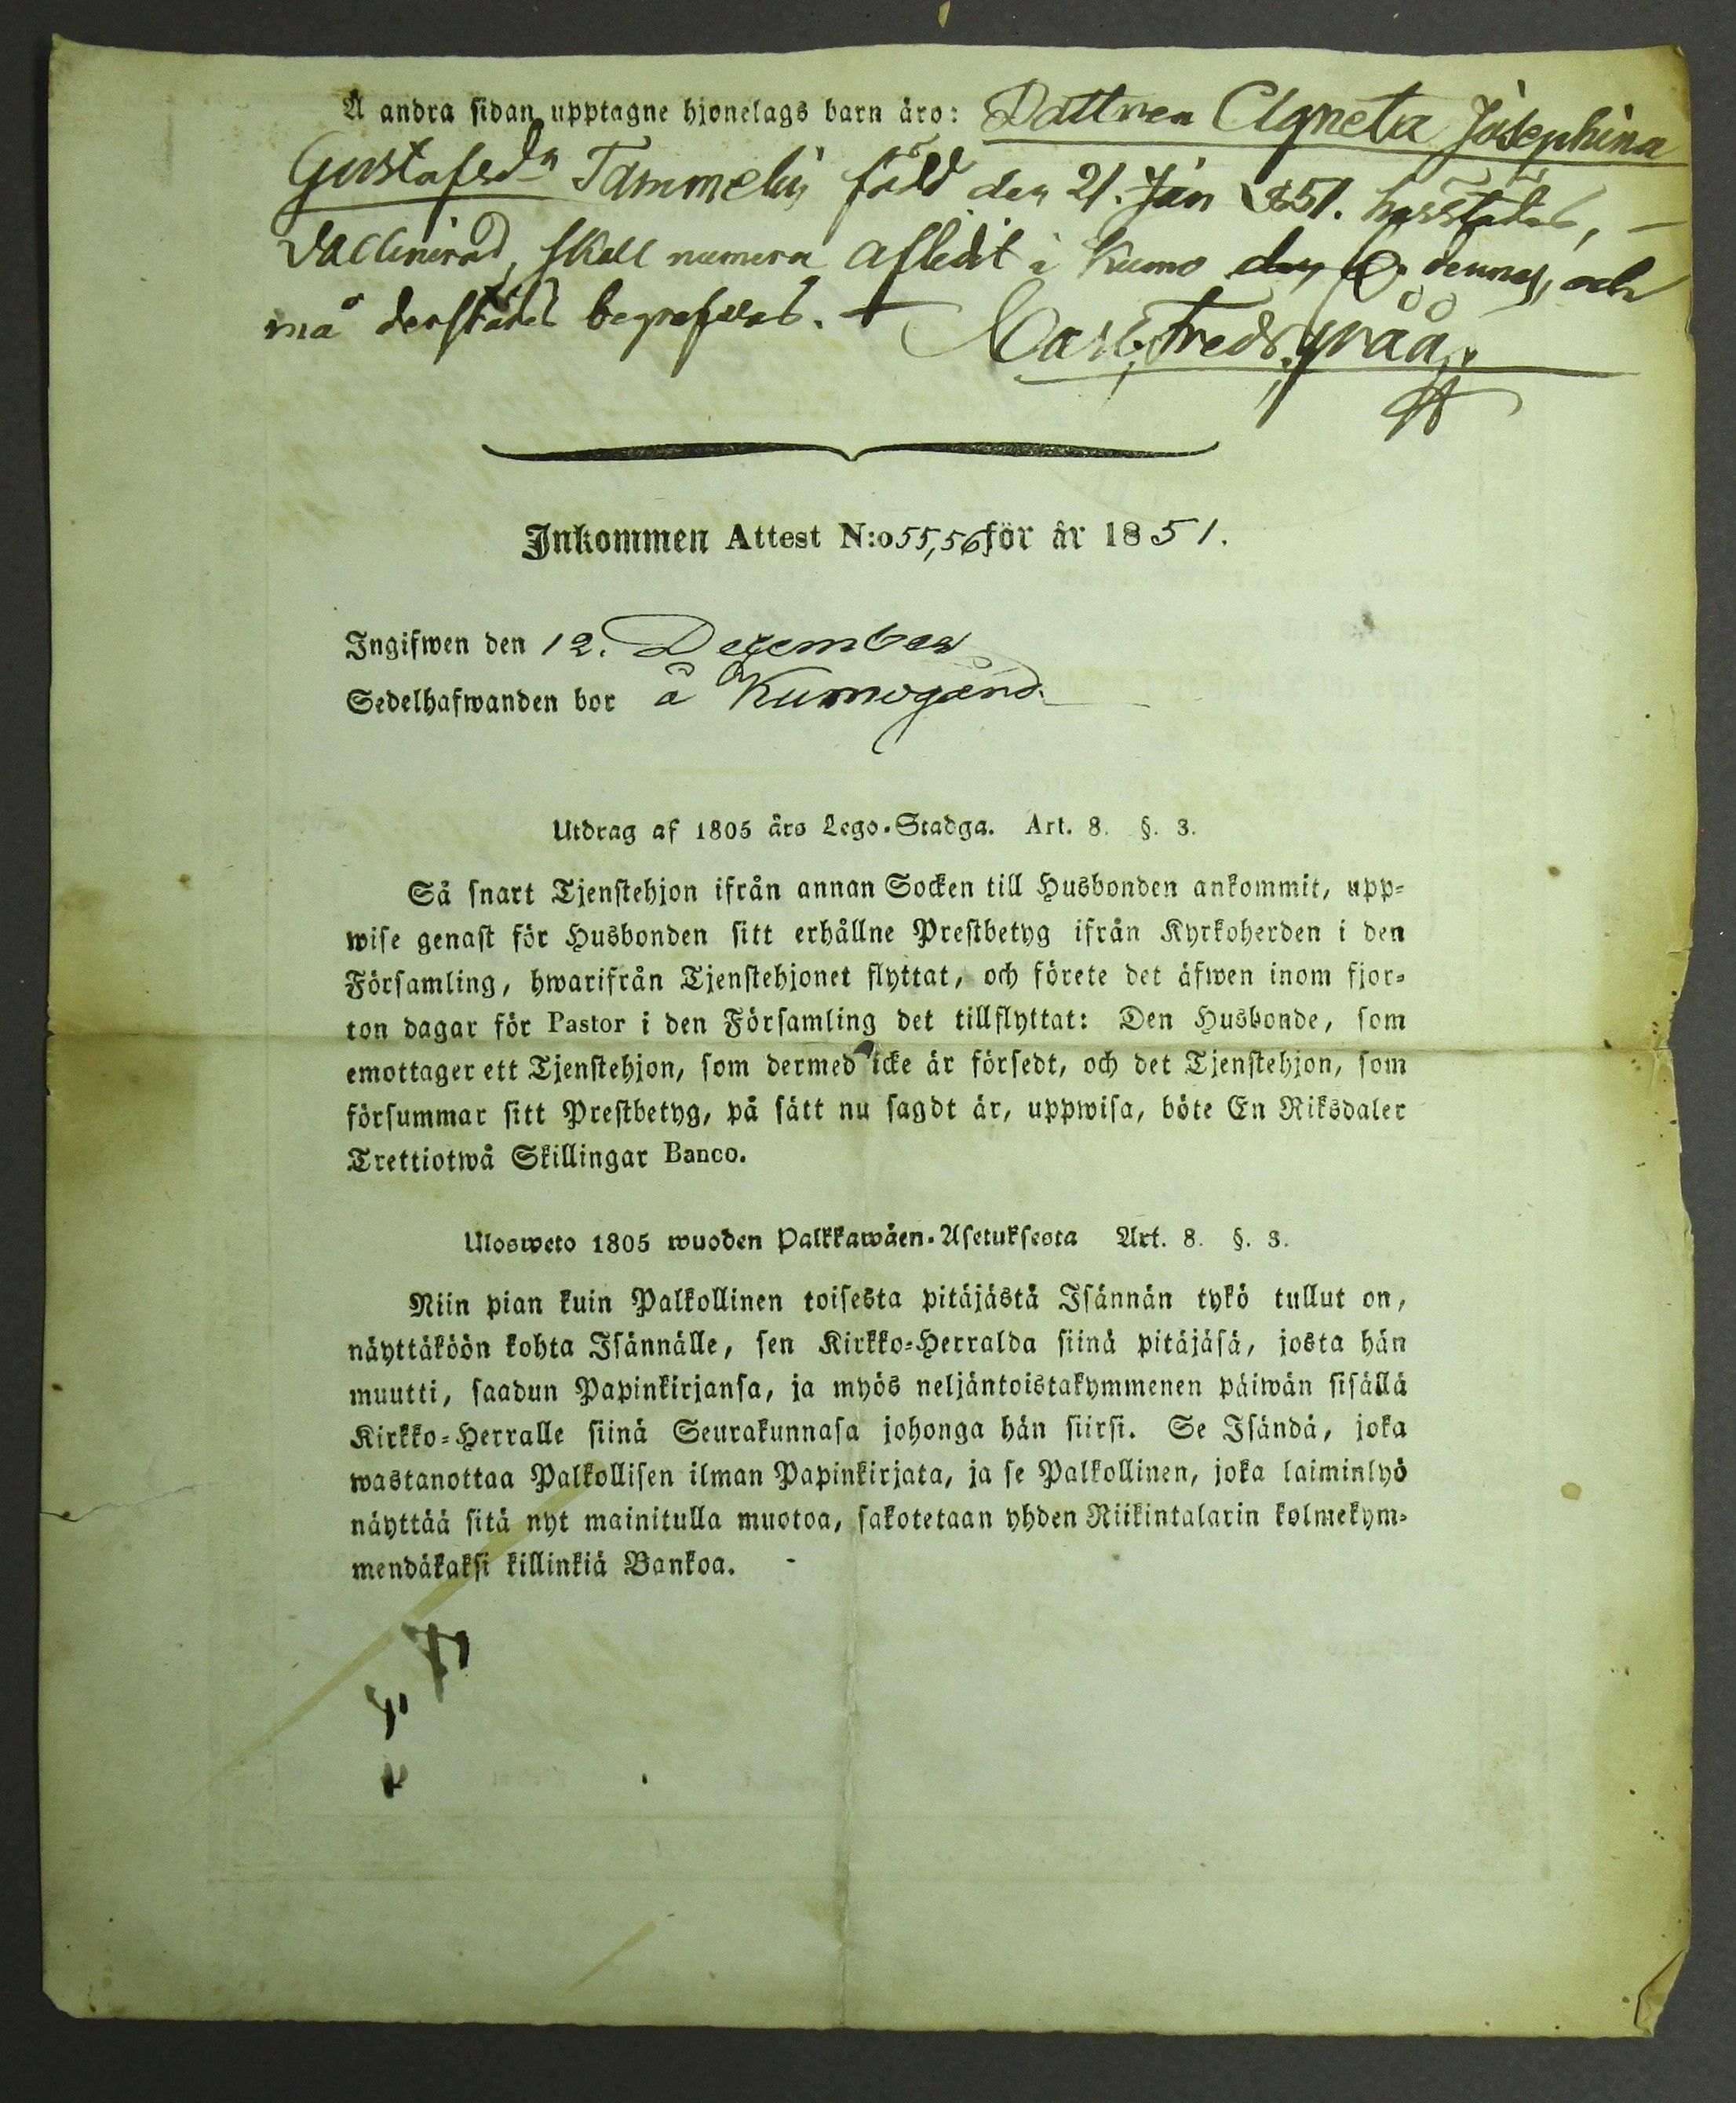 Å andra sidan upptagne hjonelags barn äro: Dottren Agneta Josephina
Gustafsdr Tammelin född den 21. Jan 1851. härstädes,
Vaccinerad, skall numera aflidit i Kumo den dennes, och
må derstädes begrafwas. Carl Fredr.
Inkommen Attest N:o 55,56 för år 1851.
Ingifwen den 12. December
Sedelhafwanden bor å Kumogård
Utdrag af 1805 års Lego-Stadga. Art. 8. §. 3.
Så snart Tjenstehjon ifrån annan Socken till Husbonden ankommit, upp-
wise genast för Husbonden sitt erhållne Prestbetyg ifrån Kyrkoherden i den
Församling, hwarifrån Tjenstehjonet flyttat, och förete det äfwen inom fjor-
ton dagar för Pastor i den Församling det tillflyttat: Den Husbonde, som
emottager ett Tjenstehjon, som dermed icke är försedt, och det Tjenstehjon, som
försummar sitt Prestbetyg, på sätt nu sagdt är, uppwisa, böte En Riksdaler
Trettiotwå Skillingar Banco.
Ulosweto 1805 wuoden Palkkawäen-Asetuksesta Art. 8. §. 3.
Niin pian kuin Palkollinen toisesta pitäjästä Isännän tykö tullut on,
näyttäköön kohta Isännälle, sen Kirkko-Herralda siinä pitäjäsä, josta hän
muutti, saadun Papinkirjansa, ja myös neljäntoistakymmenen päiwän sisällä
Kirkko-Herralle siinä Seurakunnasa johonga hän siirsi. Se Isändä, joka
wastanottaa Palkollisen ilman Papinkirjata, ja se Palkollinen, joka laiminlyö
näyttää sitä nyt mainitulla muotoa, sakotetaan yhden Riikintalarin kolmekym-
mendäkaksi killinkiä Bankoa.